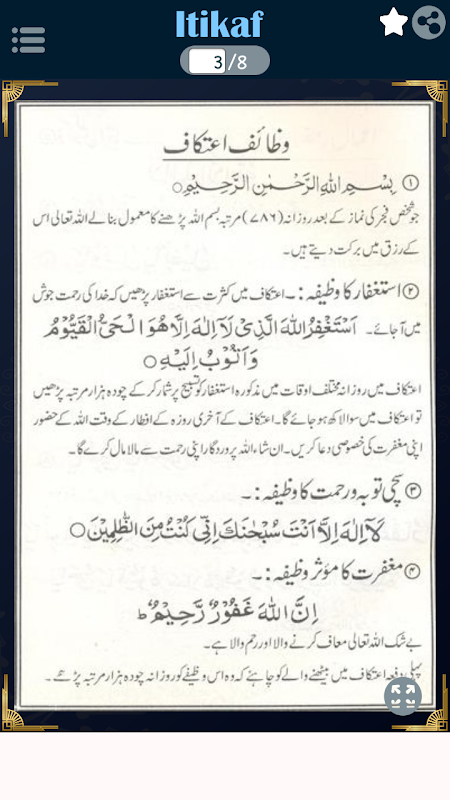 Itikaf
3/8
وظائف اعتکاف
① بِسْمِ اللهِ الرَّحْمٰنِ الرَّحِيْمِ○
جو شخص فجر کی نماز کے بعد روزانہ (۷۸۶) مرتبہ بسم اللہ پڑھنے کا معمول بنالے اللہ تعالی اس
کے رزق میں برکت دیتے ہیں۔
② استغفار کا وظیفہ:۔ اعتکاف میں کثرت سے استغفار پڑھیں کہ خدا کی رحمت جوش
میں آجائے۔ اَسْتَغْفِرُ اللهَ الَّذِىْ لَآ اِلٰهَ اِلَّا هُوَ الْحَىُّ الْقَيُّوْمُ
وَاَتُوْبُ اِلَيْهِ○
اعتکاف میں روزانہ مختلف اوقات میں مذکورہ استغفار کو تسبیح پر شمار کر کے چودہ ہزار مرتبہ پڑھیں
تو اعتکاف میں سوا لاکھ ہو جائے گا۔ اعتکاف کے آخری روزہ کے افطار کے وقت اللہ کے حضور
اپنی مغفرت کی خصوصی دعا کریں۔ ان شاءاللہ پروردگار اپنی رحمت سے مالا مال کرے گا۔
③ سچی توبہ و رحمت کا وظیفہ:۔
لَآ اِلٰهَ اِلَّا اَنْتَ سُبْحٰنَكَ اِنِّىْ كُنْتُ مِنَ الظّٰلِمِيْنَ○
④ مغفرت کا مؤثر وظیفہ:۔
اِنَّ اللهَ غَفُوْرٌ رَّحِيْمٌ ط
بے شک اللہ تعالی معاف کرنے والا اور رحم والا ہے۔
پہلی دفعہ اعتکاف میں بیٹھنے والے کو چاہئے کہ وہ اس وظیفے کو روزانہ چودہ ہزار مرتبہ پڑھے۔